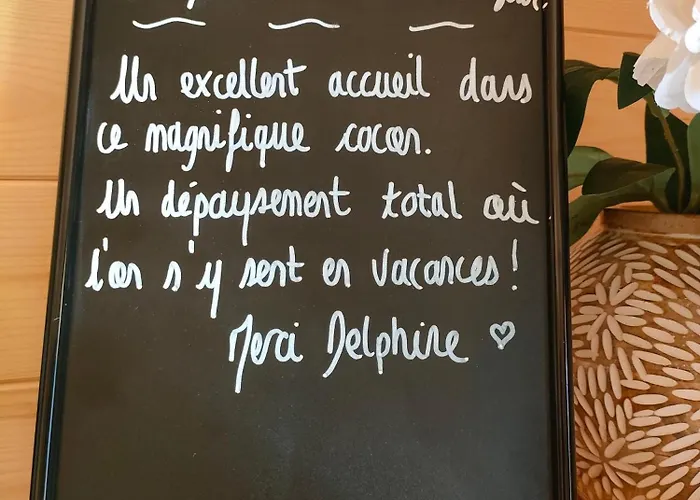 Un excellent accueil dans
ce magnifique cocon.
Un dépaysement total où
l'on s'y sent en vacances !
Merci Delphine ♡